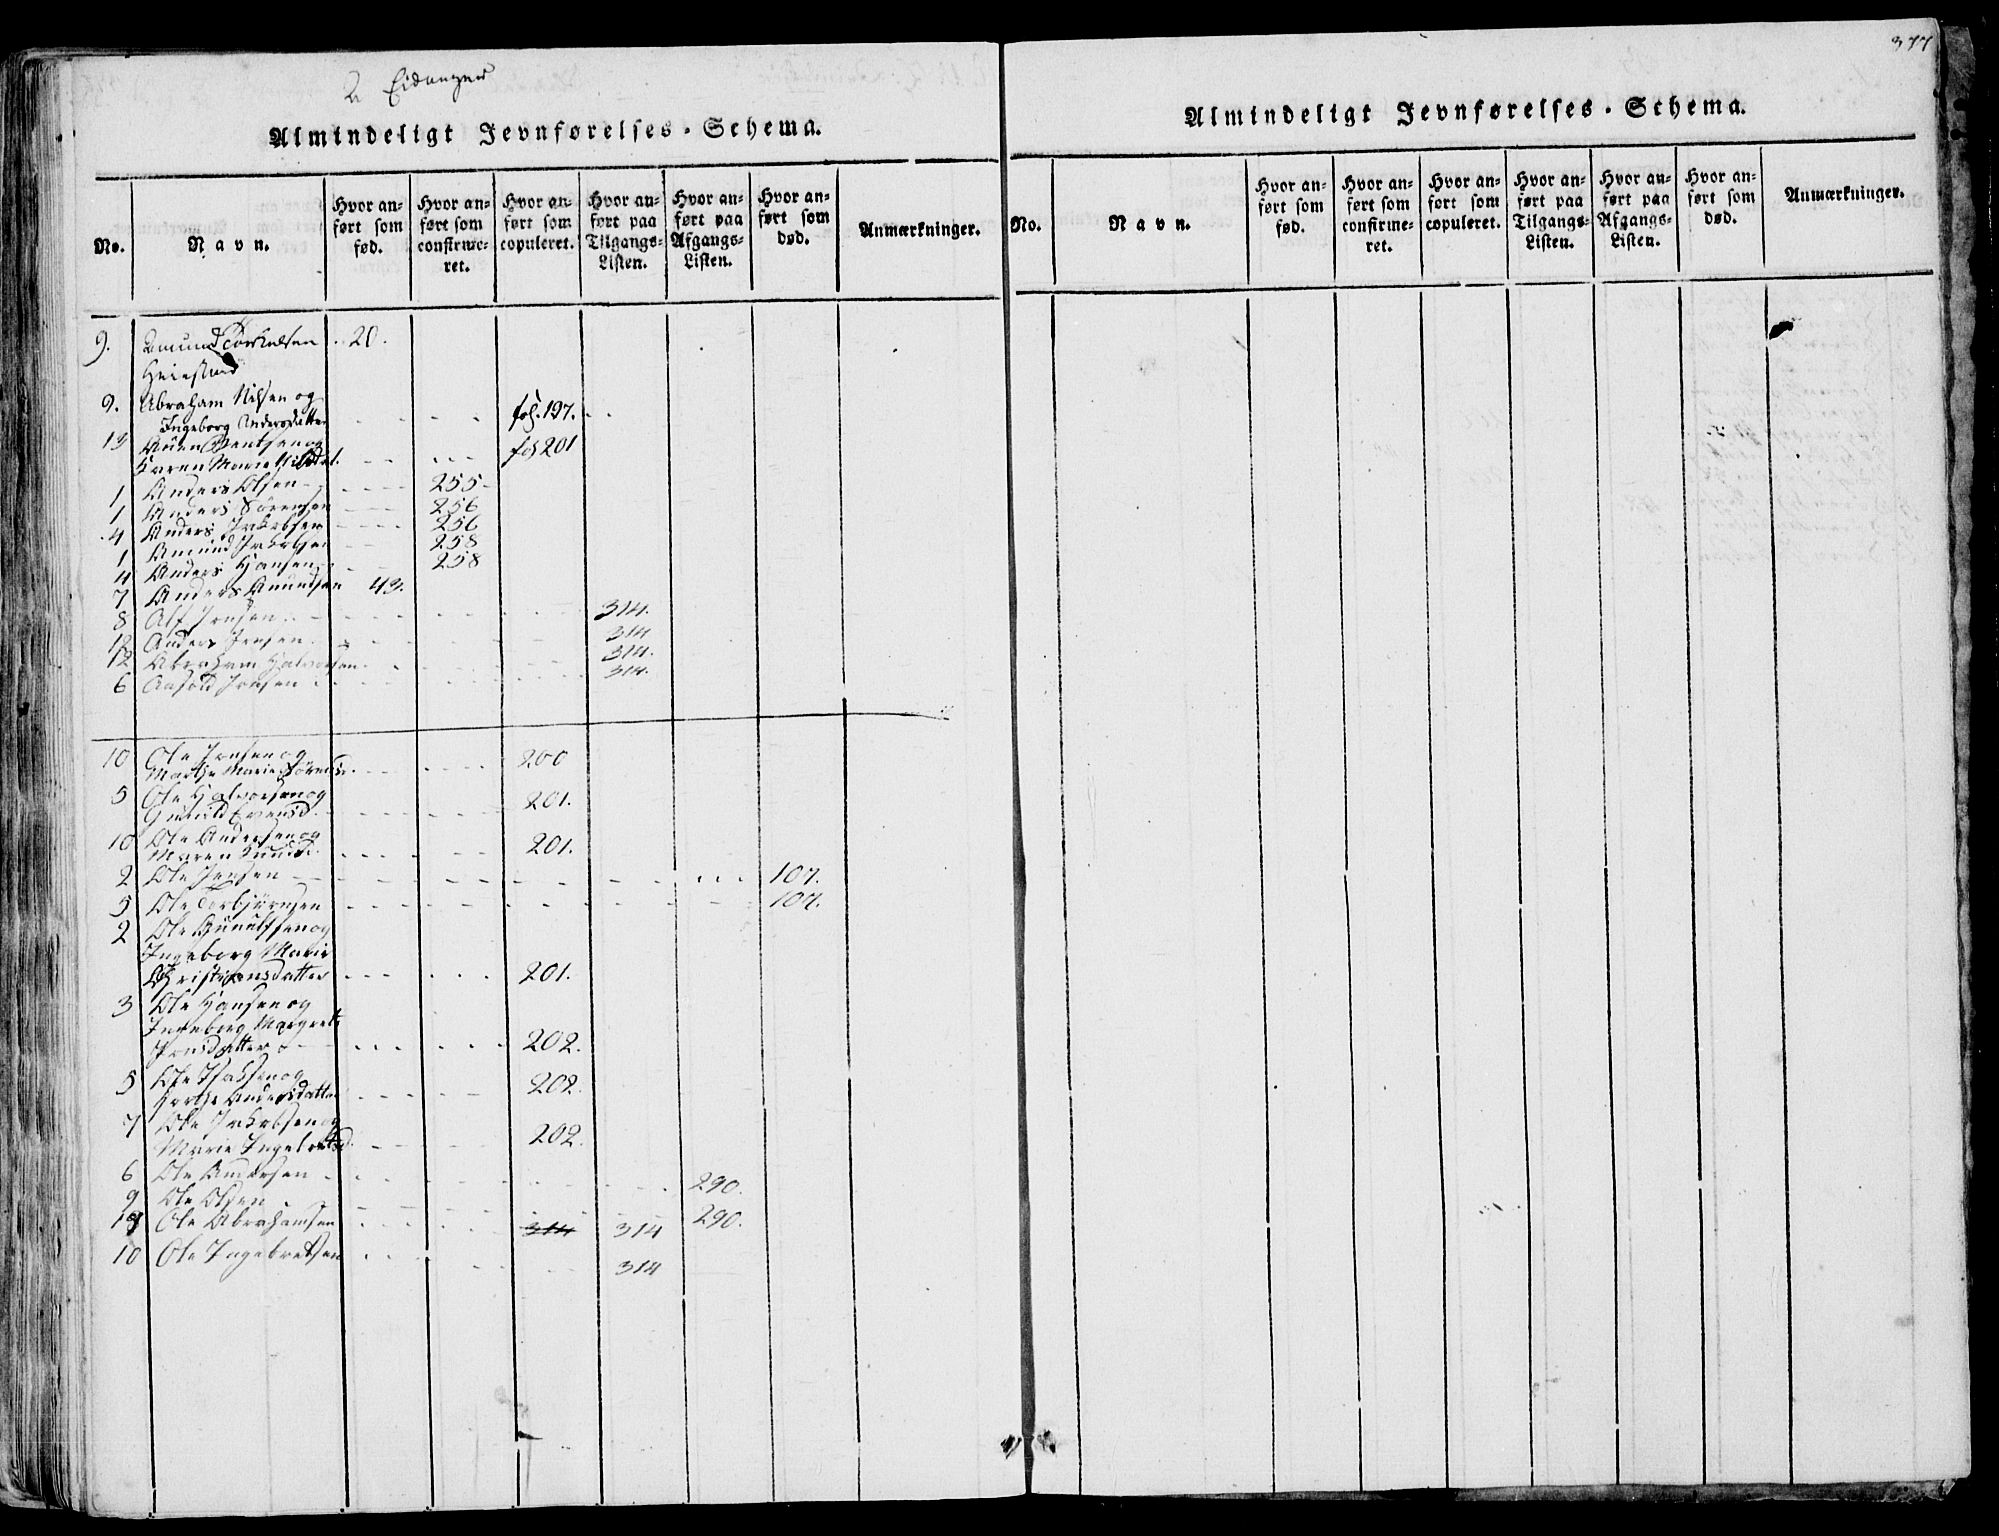 377
Eidanger
Almindeligt Jevnførelses-Schema.
No. Navn. Hvor anført som fød. Hvor anført som confirmeret. Hvor anført som copuleret. Hvor anført paa Tilgangs-Listen. Hvor anført paa Afgangs-Listen. Hvor anført som død. Anmærkninger.
9. Amund Torkelsen 20.
9. Abraham Nilsen og
Ingeborg Andersdatter fol. 197.
13 Bentsen og
Karen Marie fol 201
1 Anders Olsen 255
1 Anders Sörensen 256
4 Anders Jakobsen 256
1 Amund Jakobsen 258
4 Anders Hansen 258
7 Anders Amundsen 43.
8 Alf Jensen 314.
12 Anders Jensen 314
12 Abraham Halvorsen 314.
6 Aasold Jensen 314.
10 Ole Jensen og
Marthe Marie Sörensd. 200
5 Ole Halvorsen og
Gunild Evensd. 201.
10 Ole Andersen og
Maren Knudsd. 201.
2 Ole Jensen 107.
5 Ole Torbjörnsen 107.
2 Ole Gunulfsen og
Ingeborg Marie
Christiansdatter 201.
3 Ole Hansen og
Ingeborg Margrete
Jensdatter 202.
5 Ole Isaksen og
Andersdatter 202.
7 Ole Jakobsen og
Marie Ingebretsd. 202.
6 Ole Andersen 290.
9 Ole Olsen 290.
Ole Abrahamsen 314 314
10 Ole Ingebretsen 314
Almindeligt Jevnførelses-Schema.
No. Navn. Hvor anført som fød. Hvor anført som confirmeret. Hvor anført som copuleret. Hvor anført paa Tilgangs-Listen. Hvor anført paa Afgangs-Listen. Hvor anført som død. Anmærkninger.